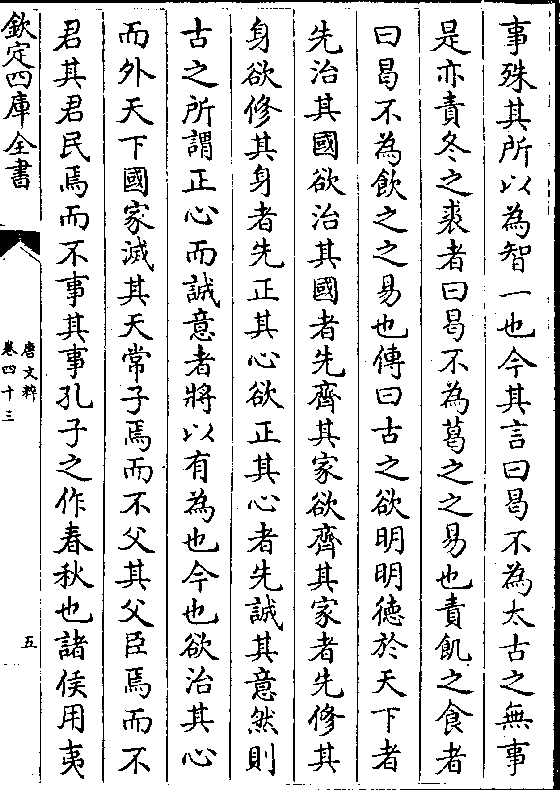 事殊其所以為智一也今其言曰曷不為太古之無事
是亦責冬之裘者曰曷不為葛之之易也責飢之食者
曰曷不為飲之之易也傳曰古之欲明明德於天下者
先治其國欲治其國者先齊其家欲齊其家者先修其
身欲修其身者先正其心欲正其心者先誠其意然則
古之所謂正心而誠意者將以有為也今也欲治其心
而外天下國家滅其天常子焉而不父其父臣焉而不
君其君民焉而不事其事孔子之作春秋也諸侯用夷
欽定四庫全書
唐文粹
卷四十三
五